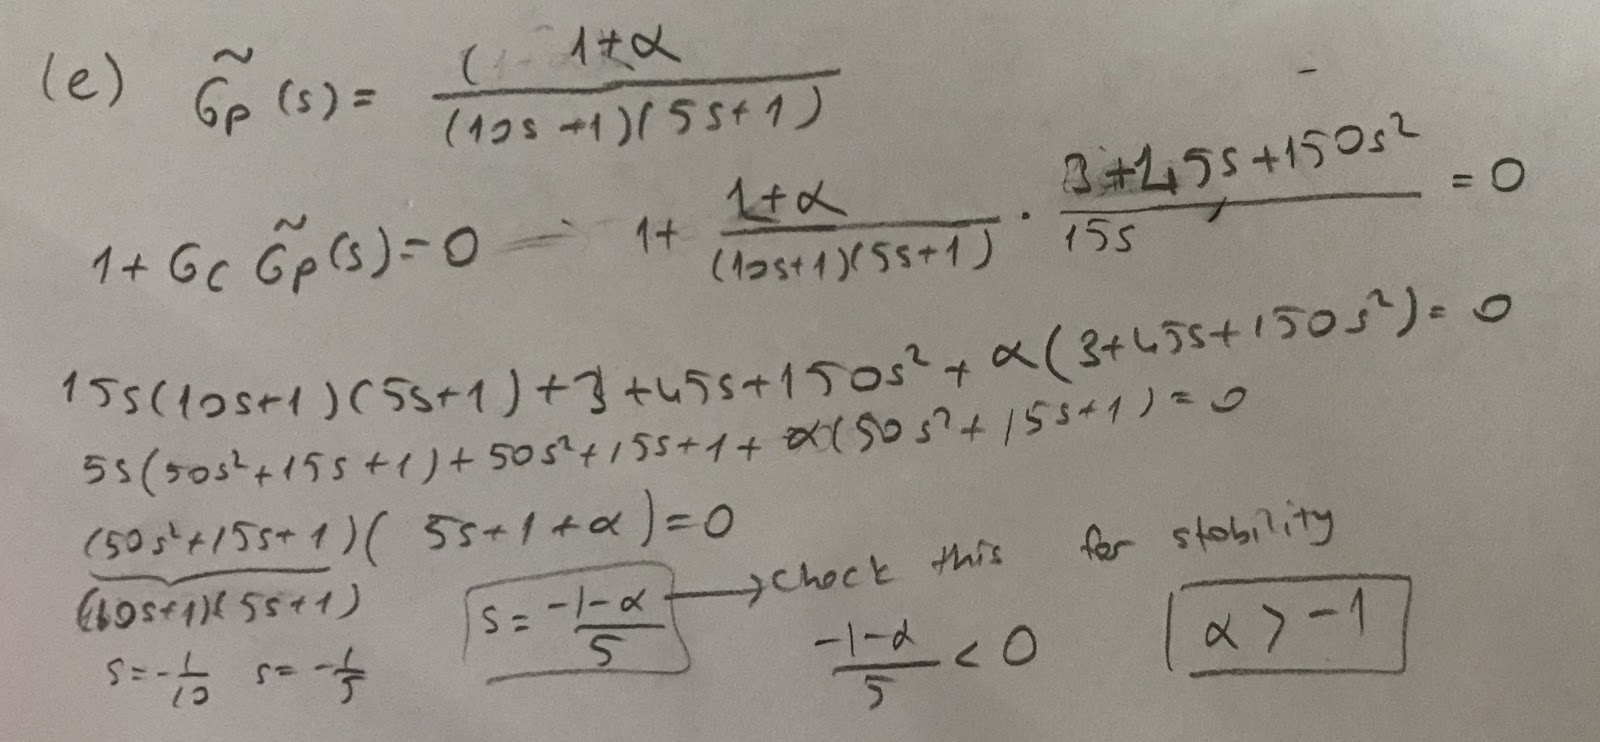 (e) G̃p(s) = (1+α / (10s+1)(5s+1)
1+ Gc G̃p(s) = 0 — 1+ 1+α / (10s+1)(5s+1) · 3+45s+150s² / 15s = 0
15s(10s+1)(5s+1)+3+45s+150s²+α(3+45s+150s²)=0
5s(50s²+15s+1)+50s²+15s+1+α(50s²+15s+1)=0
(50s²+15s+1)(5s+1+α)=0
(10s+1)(5s+1)
s=-1/10 s=-1/5
s = -1-α / 5 → check this for stability
-1-α / 5 < 0
α > -1